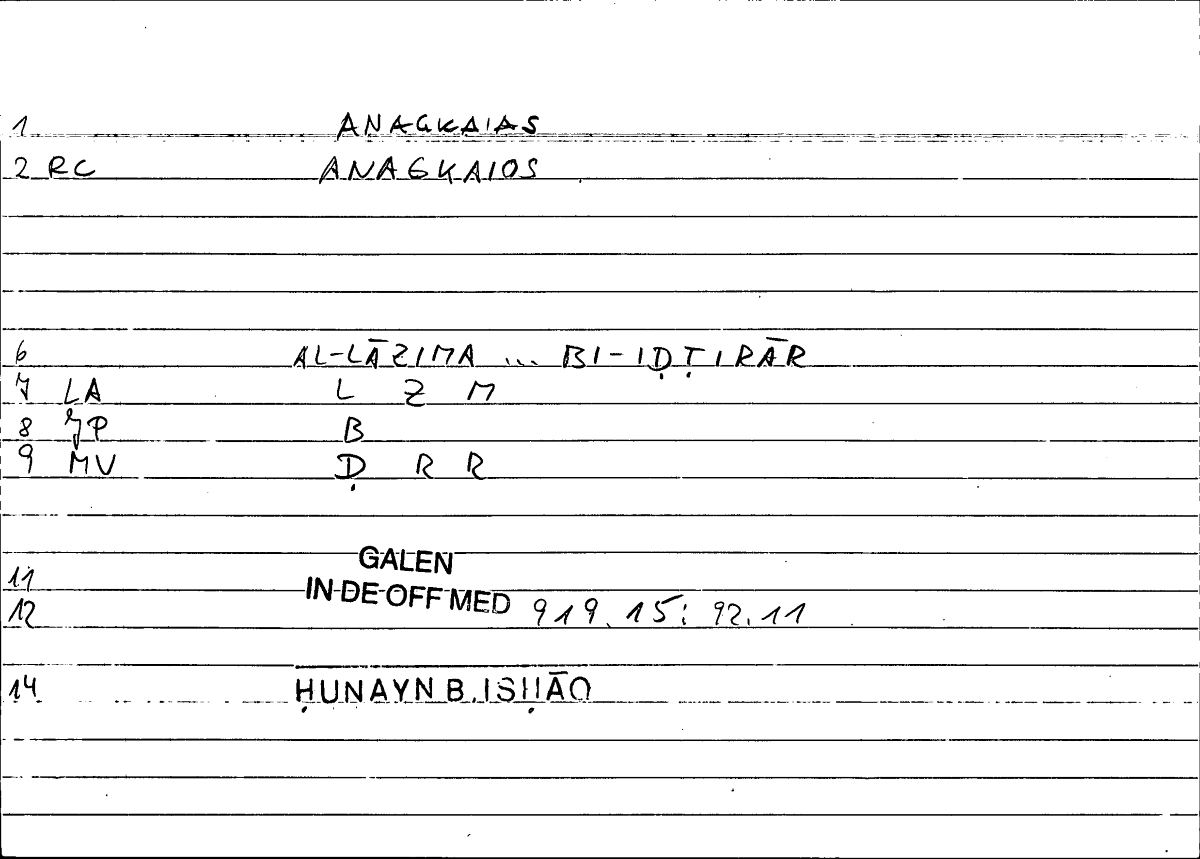 1 ANAGKAIAS
2 RC ANAGKAIOS
6 AL-LĀZIMA ... BI-IḌṬIRĀR
7 LA L Z M
8 JP B
9 MV Ḍ R R
GALEN
11 IN DE OFF MED 919.15; 92.11
12
14 ḤUNAYN B. ISḤĀQ